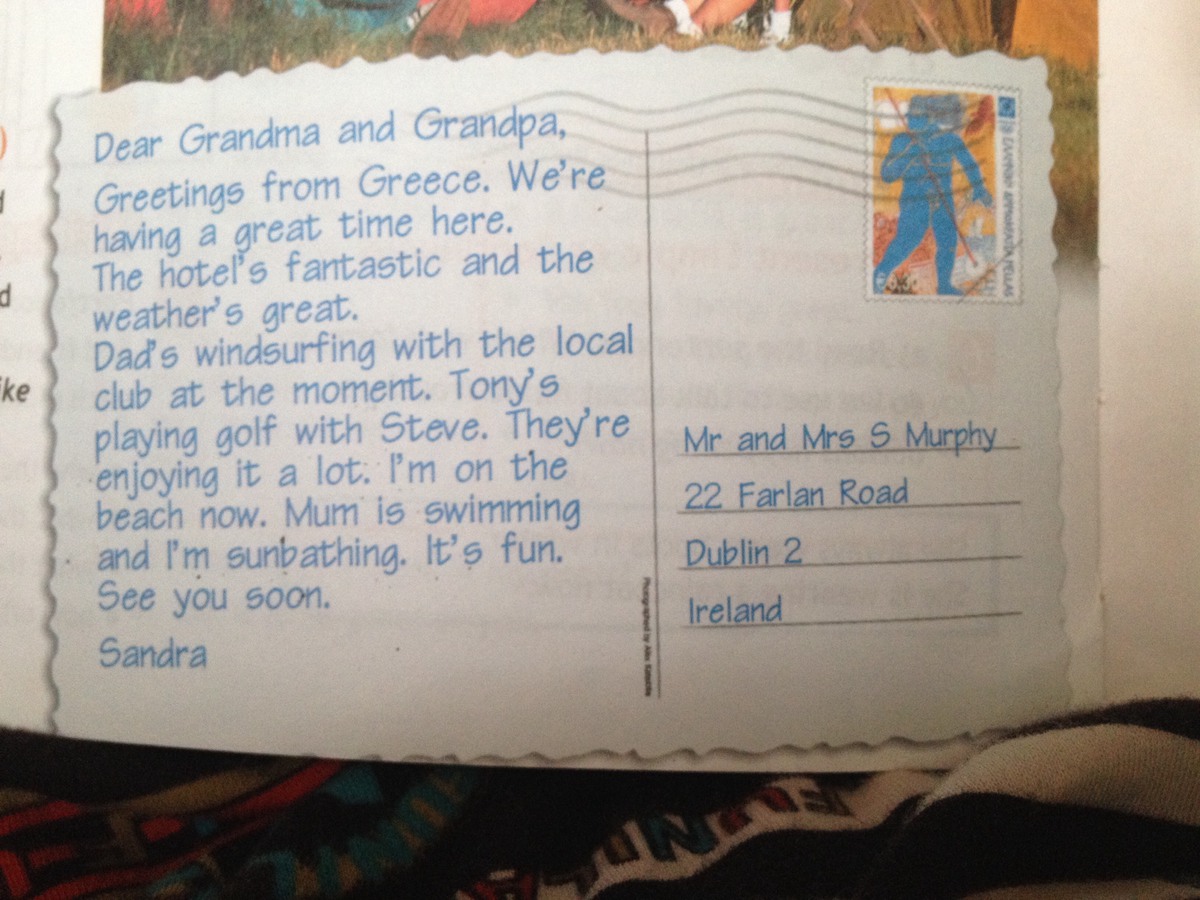 Dear Grandma and Grandpa,
Greetings from Greece. We're
having a great time here.
The hotel's fantastic and the
weather's great.
Dad's windsurfing with the local
club at the moment. Tony's
playing golf with Steve. They're
enjoying it a lot. I'm on the
beach now. Mum is swimming
and I'm sunbathing. It's fun.
See you soon.
Sandra
Mr and Mrs S Murphy
22 Farlan Road
Dublin 2
Ireland
Photographed by Alex
ike
d